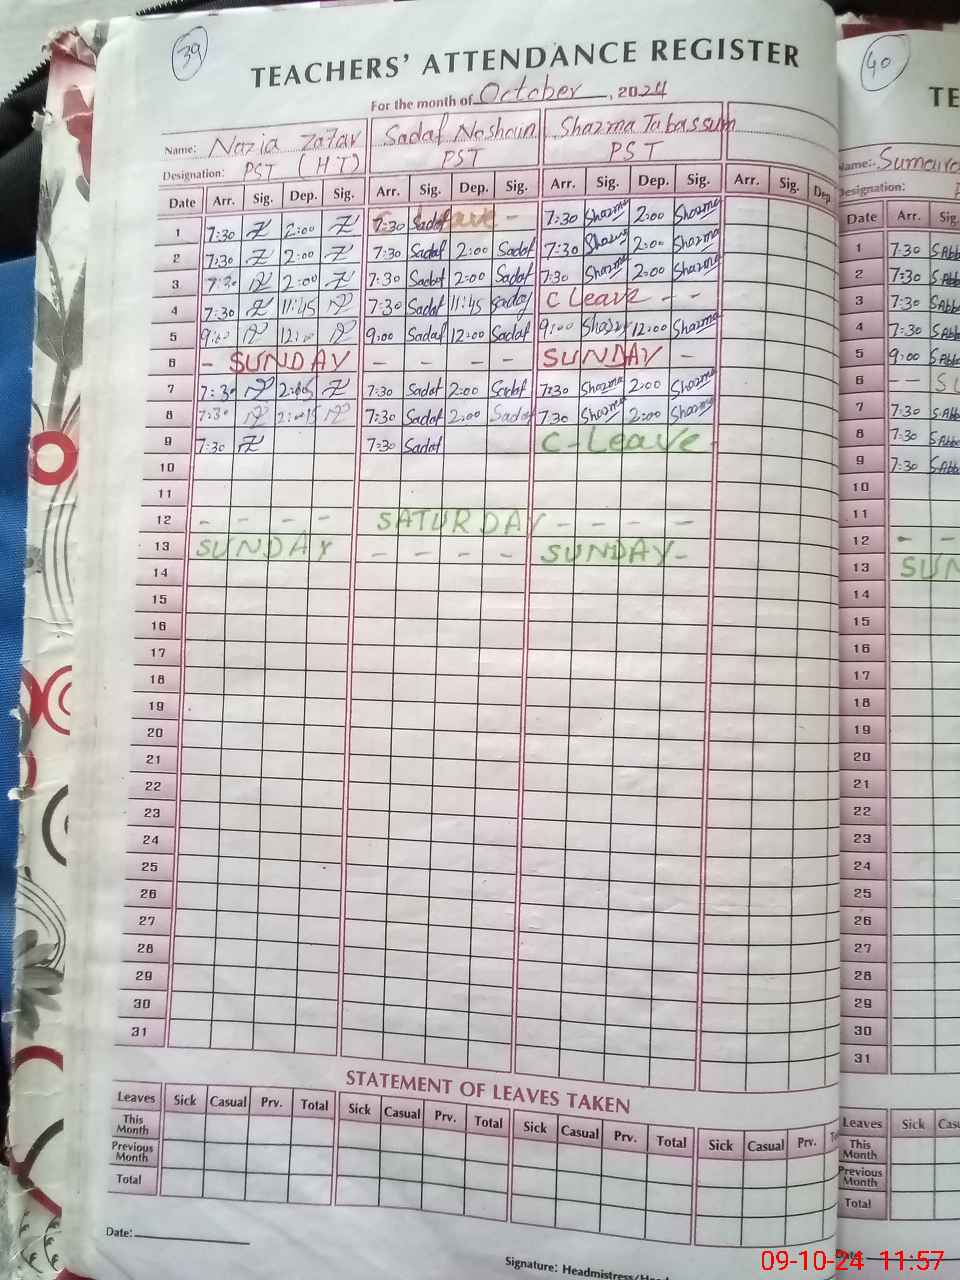 39
TEACHERS' ATTENDANCE REGISTER
For the month of October, 2024
Name: Nazia Zafar Sadaf Noshain Shazma Tabassum
Designation: PST (HT) PST PST
Date Arr. Sig. Dep. Sig. Arr. Sig. Dep. Sig. Arr. Sig. Dep. Sig. Arr. Sig. Dep
1 7:30 Z 2:00 Z 7:30 Sadaf - 7:30 Shazma 2:00 Shazma
2 7:30 Z 2:00 Z 7:30 Sadaf 2:00 Sadaf 7:30 Shazma 2:00 Shazma
3 7:30 2:00 Z 7:30 Sadaf 2:00 Sadaf 7:30 Shazma 2:00 Shazma
4 7:30 Z 11:45 7:30 Sadaf 11:45 Sadaf C Leave - -
5 9:00 12:00 9:00 Sadaf 12:00 Sadaf 9:00 Shazma 12:00 Shazma
6 - SUNDAY - - - - SUNDAY -
7 7:30 Z 7:30 Sadaf 2:00 Sadaf 7:30 Shazma 2:00 Shazma
8 7:30 7:30 Sadaf 2:00 Sadaf 7:30 Shazma 2:00 Shazma
9 7:30 Z 7:30 Sadaf C-Leave
10
11
12 - - - - SATURDAY - - - -
13 SUNDAY - - - - SUNDAY-
14
15
16
17
18
19
20
21
22
23
24
25
26
27
28
29
30
31
STATEMENT OF LEAVES TAKEN
Leaves Sick Casual Prv. Total Sick Casual Prv. Total Sick Casual Prv. Total Sick Casual Prv.
This Month
Previous Month
Total
Date:
Signature: Headmistress/
40
TE
Name:
Designation:
Date Arr. Sig.
1 7:30 S.Abb
2 7:30 S.Abb
3 7:30 S.Abb
4 7:30 S.Abb
5 9:00 S.Abb
6 - - SU
7 7:30 S.Abb
8 7:30 S.Abb
9 7:30 S.Abb
10
11
12 - -
13 SUN
14
15
16
17
18
19
20
21
22
23
24
25
26
27
28
29
30
31
Leaves Sick Cas
This Month
Previous Month
Total
Date
09-10-24 11:57